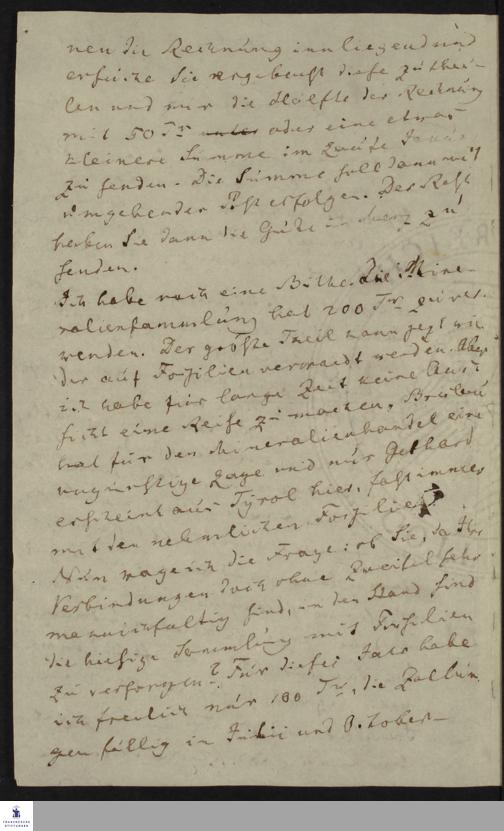 nen die Rechnung innliegend und
ersuche Sie ergebenst diese zu thei-
len und mir die Hälfte der Rechnung
mit 50 Tr oder eine etwas
kleinere Summe im Laufe
zu senden. Die Summe soll dann mit
umgehender Post erfolgen. Der Rest
haben Sie dann die Güte im Merz zu
senden.
Ich habe noch eine Bitte. Die Mine-
raliensammlung hat 200 Tr zu ver-
wenden. Der größte Theil kann jezt wie
der auf Foßilien verwandt werden. Aber
ich habe für lange Zeit keine Aus-
sicht eine Reise zu machen. Breslau
hat für den Mineralienhandel eine
ungünstige Lage und nur Gebhard
erscheint aus Tyrol hier, fast immer
mit den nehmlichen Foßilien.
Nun wage ich die Frage: ob Sie, da Ihre
Verbindungen doch ohne Zweifel sehr
mannichfaltig sind, in den Stand sind
die hiesige Sammlung mit Foßilien
zu versorgen? Für dieses Jahr habe
ich freilich nur 100 Tr, die Zallun-
gen fällig in Julii und October
FRANCKESCHE
STIFTUNGEN